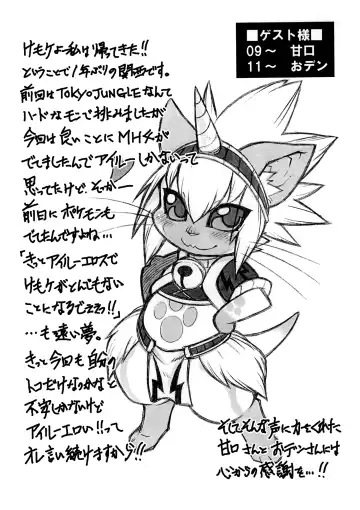 けもケよー私は帰ってきた!!
ということで1年ぶりの関西です。
前回はTOKYO JUNGLEなんて
ハードなモンで挑みましたが
今回は良いことにMH4が
でてましたんでアイルーしかないって
思ってたけど、そがー
前日にポケモンも
でてたんですよね…
「きっとアイルーエロスで
けもケがとんでもない
ことになるでしょう!!」
…も遠い夢。
きっと今回も自分の
トコだけなのかなと
不安しかないけど
アイルーエロい!!って
オレ言い続けますから!!
■ゲスト様■
09~ 甘口
11~ おデン
そしてそんな声に力をくれた
甘口さんとおデンさんには
心からの感謝を…!!